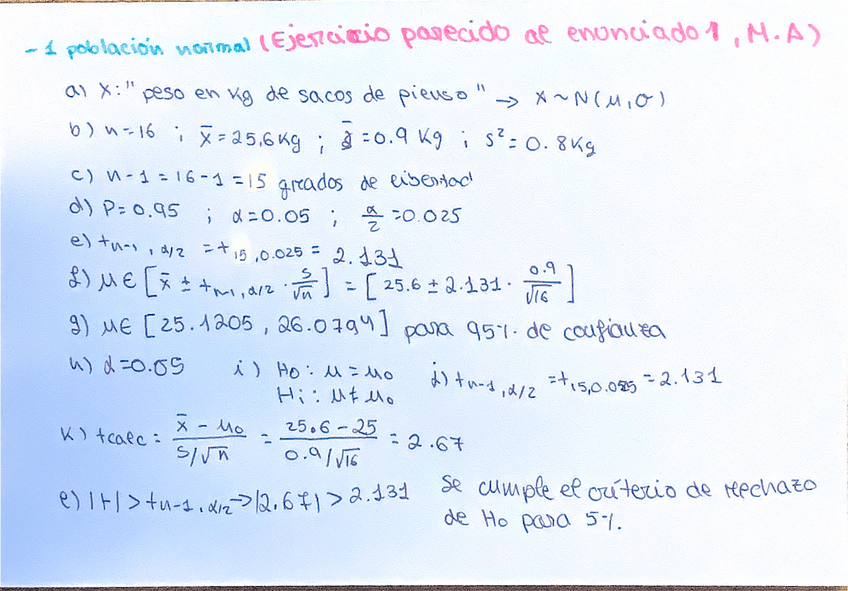 - 1 población normal (Ejercicio parecido al enunciado 1, M.A)
a) X: "peso en kg de sacos de pienso" → X ~ N(μ, σ)
b) n=16 ; x̄ = 25,6 kg ; s̄ = 0.9 kg ; s² = 0.8 kg
c) n-1 = 16-1 = 15 grados de libertad
d) P=0.95 ; α=0.05 ; α/2 = 0.025
e) tn-1, α/2 = t15, 0.025 = 2.131
f) μ ∈ [x̄ ± tn-1, α/2 · s/√n] = [25.6 ± 2.131 · 0.9/√16]
g) μ ∈ [25.1205, 26.0794] para 95% de confianza
h) α=0.05 i) Ho: μ = μo j) tn-1, α/2 = t15, 0.025 = 2.131
Hi: μ ≠ μo
k) tcalc = x̄ - μo / s/√n = 25.6 - 25 / 0.9/√16 = 2.67
l) |t| > tn-1, α/2 → |2.67| > 2.131 Se cumple el criterio de rechazo
de Ho para 5%.